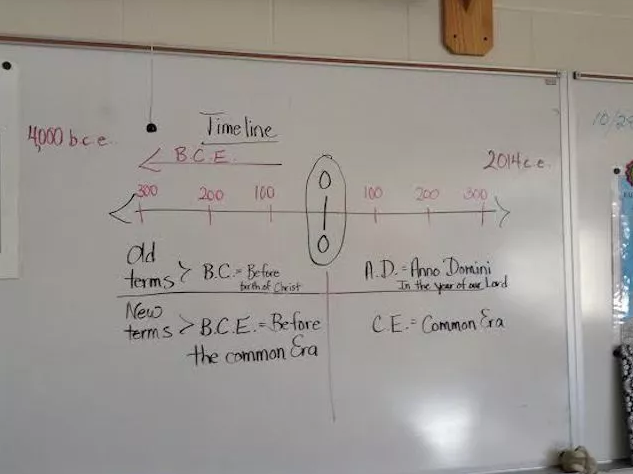 Timeline
4,000 b.c.e.
B.C.E.
2014 c.e.
0
300 200 100 100 200 300
0
Old
terms > B.C. = Before
birth of Christ
A.D. = Anno Domini
In the year of our Lord
New
terms > B.C.E. = Before
the common Era
C.E. = Common Era